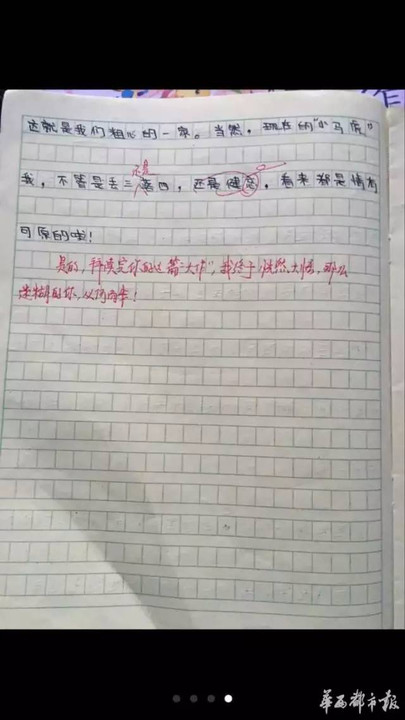 这就是我们粗心的一家。当然，现在的“小马虎”
还是
我，不管是丢三落四，还是健忘，看来都是情有
可原的啦！
是的，拜读完你的这篇“大作”，我终于恍然大悟，那么
迷糊的你，从何而来！
华西都市报